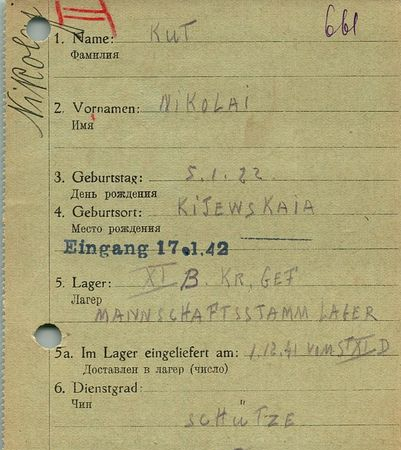 II
661
Nikolaj
1. Name: KUT
Фамилия
2. Vornamen: NIKOLAI
Имя
3. Geburtstag: 5.1.22
День рождения
4. Geburtsort: KIJEWSKAIA
Место рождения
Eingang 17.1.42
5. Lager: XI B. KR. GEF
Лагер
MANNSCHAFTSSTAMM LAGER
5a. Im Lager eingeliefert am: 1.12.41 VOM ST XI D
Доставлен в лагер (число)
6. Dienstgrad:
Чин
SCHÜTZE